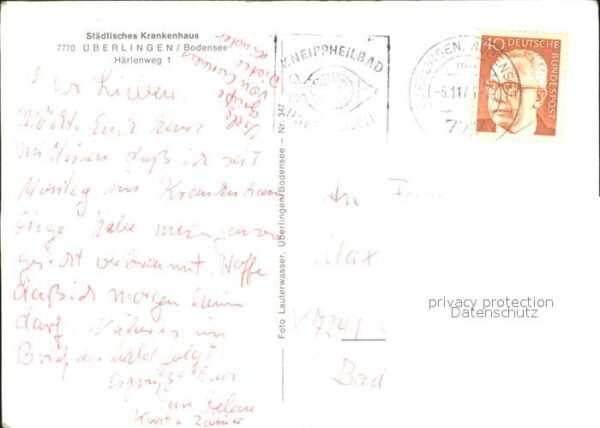 Städtisches Krankenhaus
7770 ÜBERLINGEN/Bodensee
Härlenweg 1
Ihr Lieben.
Möchte Euch kurz
mitteilen daß ich seit
Montag im Krankenhaus
liege. Habe mein ganzes
gesicht verbrannt. Hoffe
daß ich morgen heim
darf. Näheres im
Brief der bald folgt.
Es grüßt Euch
Eure Helene
Kurt +
Viele
Grüße
von
Kinder
Foto Lauterwasser, Überlingen/Bodensee – Nr. 347
KNEIPPHEILBAD
ÜBERLINGEN
-6.11.7
777
40 DEUTSCHE
BUNDESPOST
An
Max
V 7241
Bad
privacy protection
Datenschutz